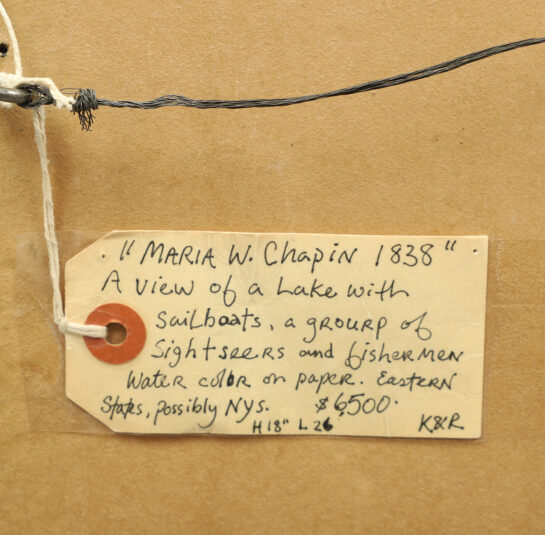 "MARIA W. Chapin 1838"
A view of a Lake with
Sailboats, a grourp of
Sightseers and fishermen
Water color on paper. Eastern
States, possibly NYs. $6,500.
H 18" L 26
K&R